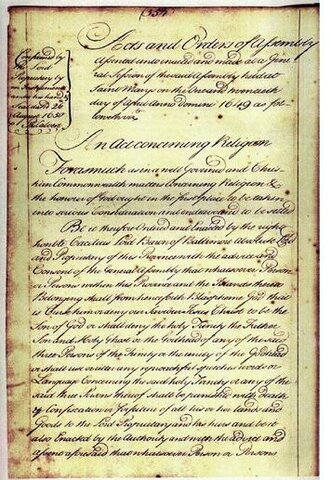 (354)
Confirmed by
the Lord
Proprietary by
an Instrument
under his hand &
Seal dated 26
August 1650
Philip Calvert
Acts and Orders of Assembly
assented unto enacted and made at a Gene-
ral Session of the said Assembly held at
Saint Maryes on the one and twentieth
day of Aprill Anno Domini 1649 as fol-
loweth viz
An Act concerning Religion
Forasmuch as in a well Governed and Chris-
tian Commonwealth matters concerning Religion &
the honour of God ought in the first place to be taken
into serious Consideration and endeavoured to be settled
Be it therefore Ordered and Enacted by the right
honble Cecilius Lord Baron of Baltimore absolute Lord
and Proprietary of this Province with the advice and
Consent of this General Assembly that whatsoever Person
or Persons within this Province and the Islands thereto
Belonging shall from henceforth Blaspheme God that
is Curse him or deny our Saviour Jesus Christ to be the
Son of God or shall deny the holy Trinity the Father
Son and Holy Ghost or the Godhead of any of the said
three Persons of the Trinity or the unity of the Godhead
or shall use or utter any reproachful speeches words or
Language Concerning the said holy Trinity or any of the
said three Persons thereof shall be punished with Death
& Confiscation or forfeiture of all his or her lands and
Goods to the Lord Proprietary and his heirs and be it
also Enacted by the Authority and with the advice and
assent aforesaid that whatsoever Person or Persons